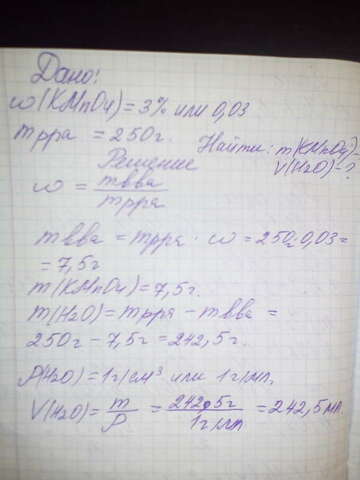 Дано:
ω(KMnO4) = 3% или 0,03
mppa = 250г. Найти: m(KMnO4)-
Решение V(H2O)-?
ω = mвва/mppa
mвва = mppa · ω = 250г·0,03=
= 7,5г
m(KMnO4) = 7,5г.
m(H2O) = mppa - mвва =
250г - 7,5г = 242,5г.
ρ(H2O) = 1г/см³ или 1г/мл,
V(H2O) = m/ρ = 242,5г/1г/мл = 242,5мл